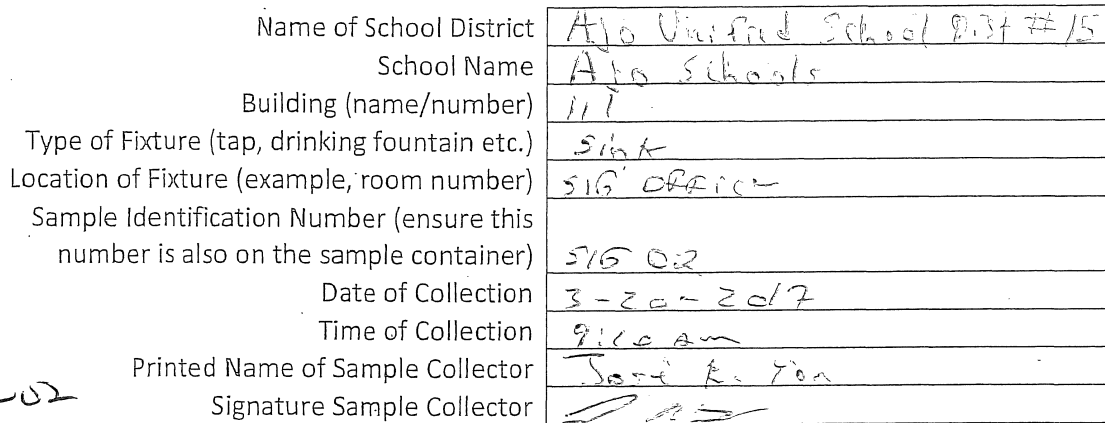 Name of School District Ajo Unified School Dist #15
School Name Ajo Schools
Building (name/number)
Type of Fixture (tap, drinking fountain etc.) Sink
Location of Fixture (example, room number) SIG OFFICE
Sample Identification Number (ensure this
number is also on the sample container) SIG 02
Date of Collection 3-20-2017
Time of Collection am
Printed Name of Sample Collector Jose R.
-02
Signature Sample Collector